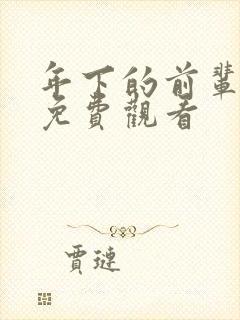 年下的前輩
免費觀看
賈璉